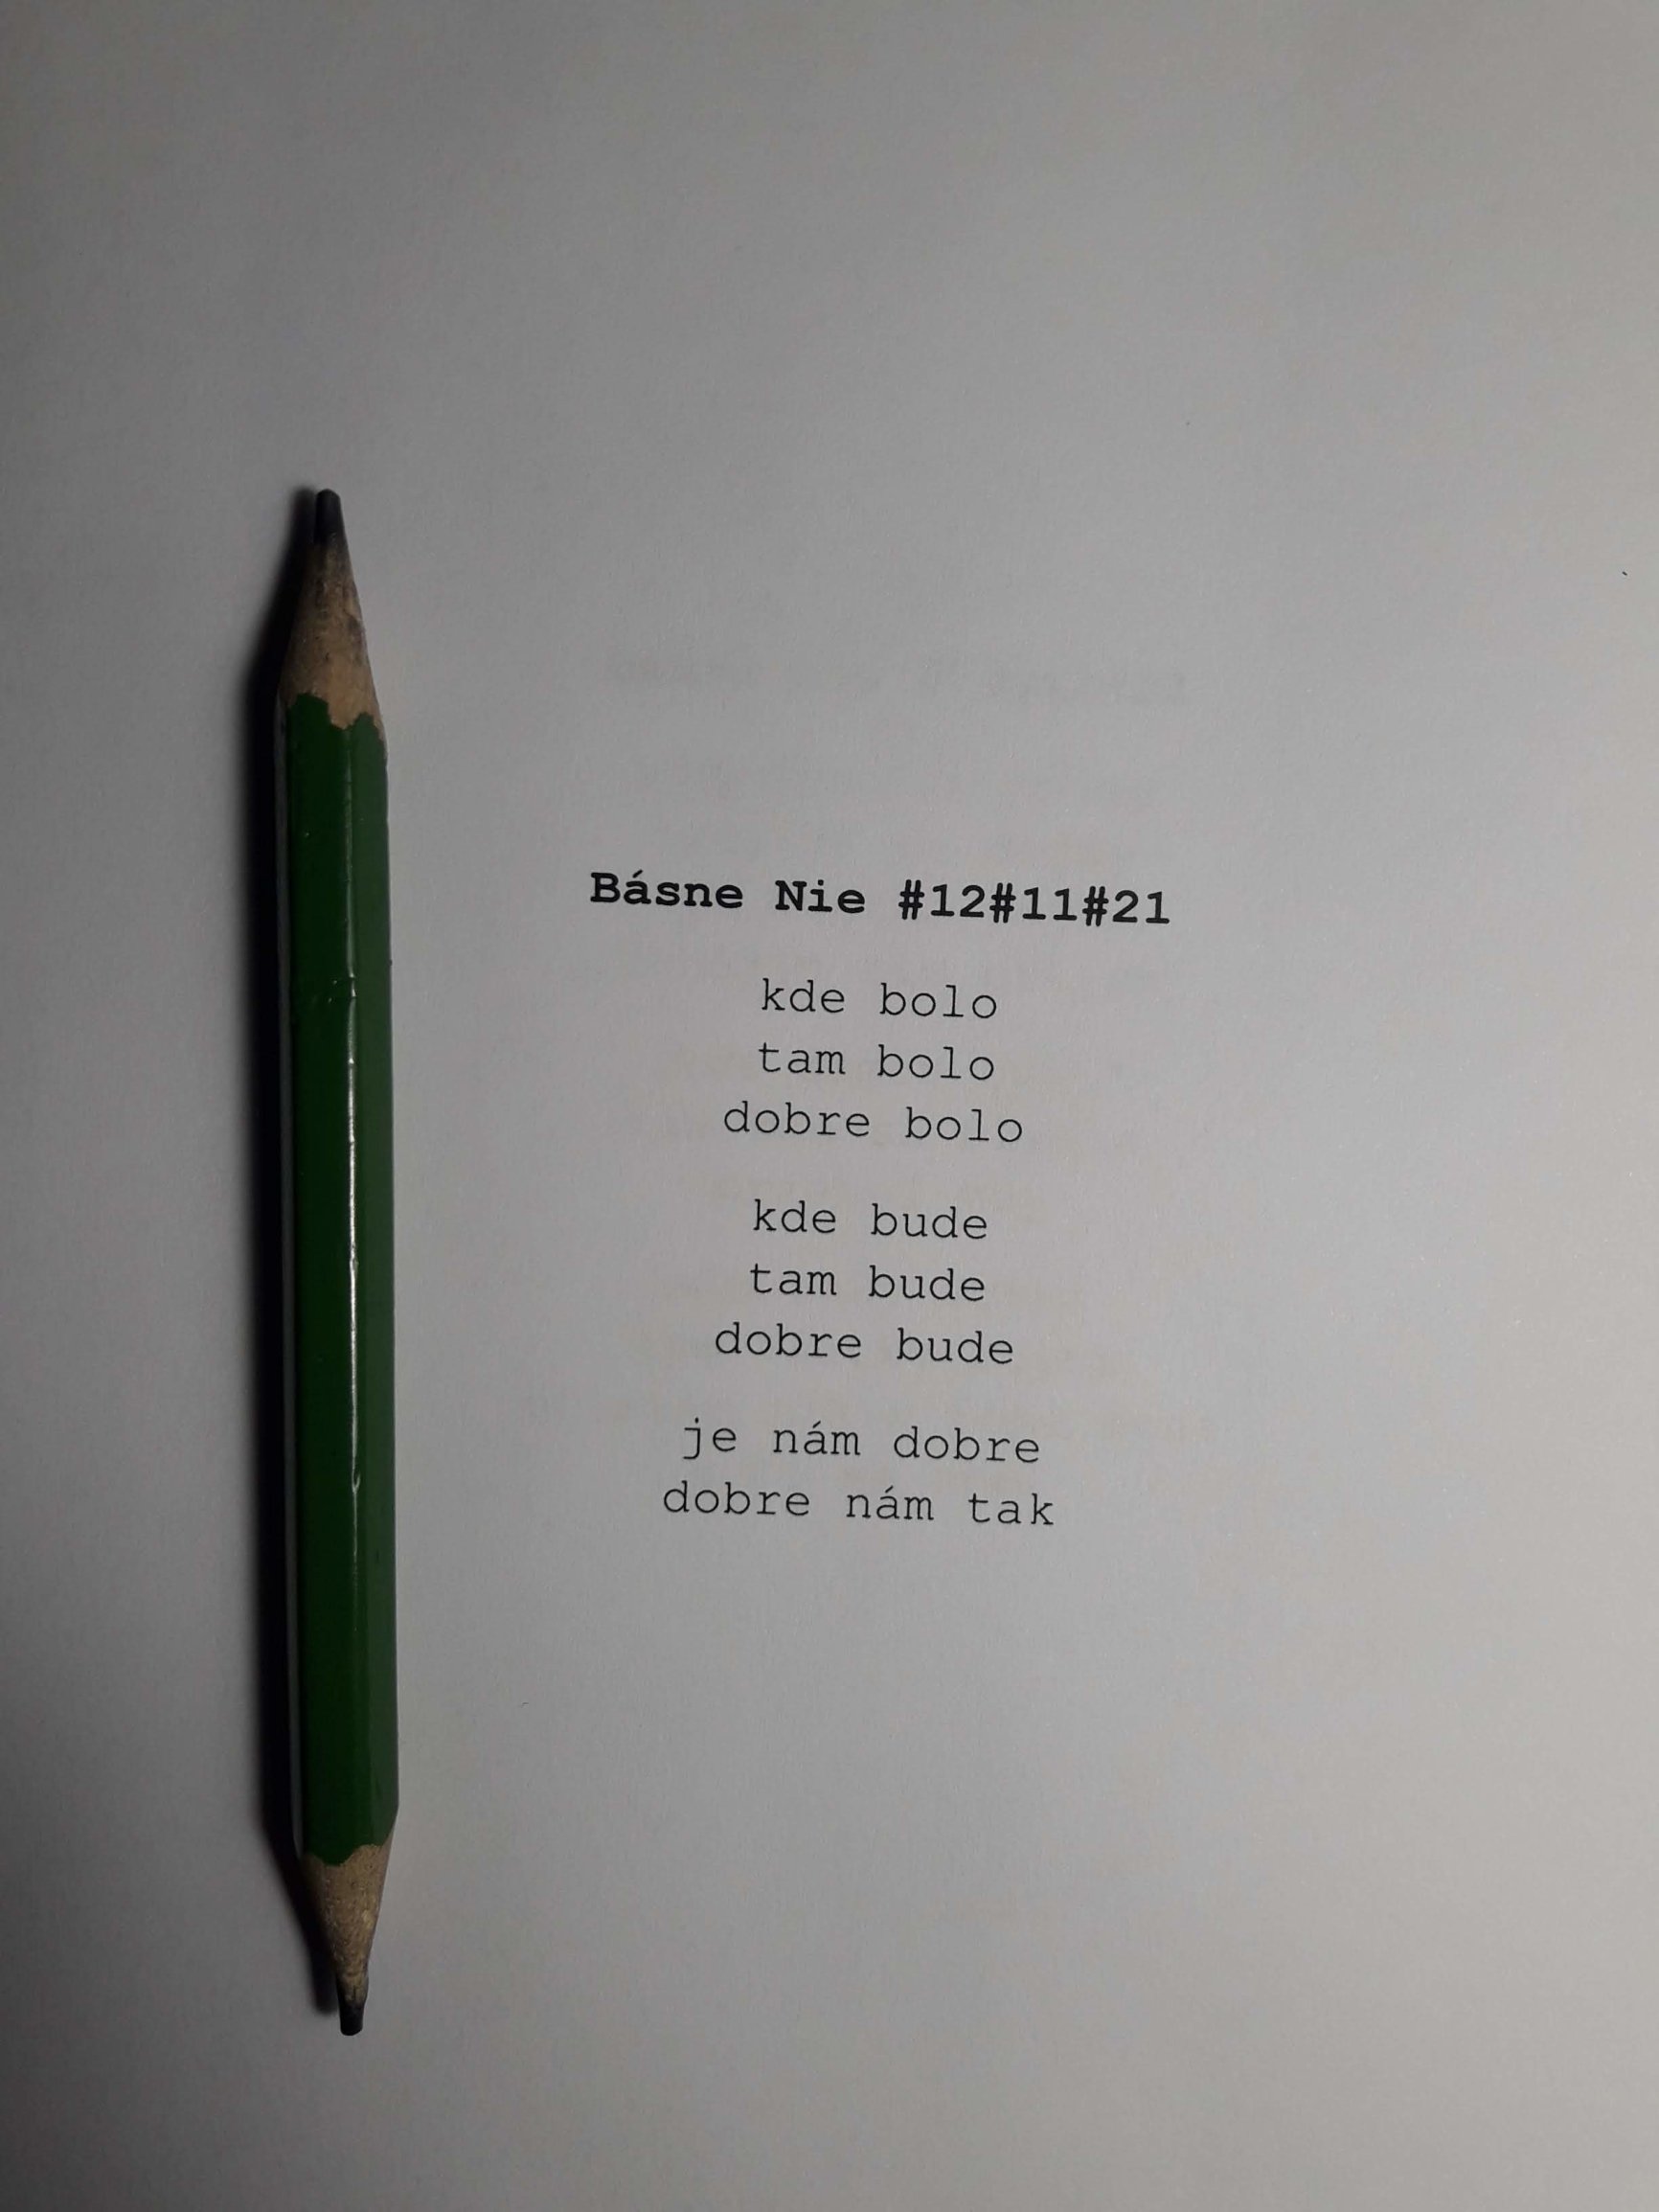 Básne Nie #12#11#21
kde bolo
tam bolo
dobre bolo
kde bude
tam bude
dobre bude
je nám dobre
dobre nám tak